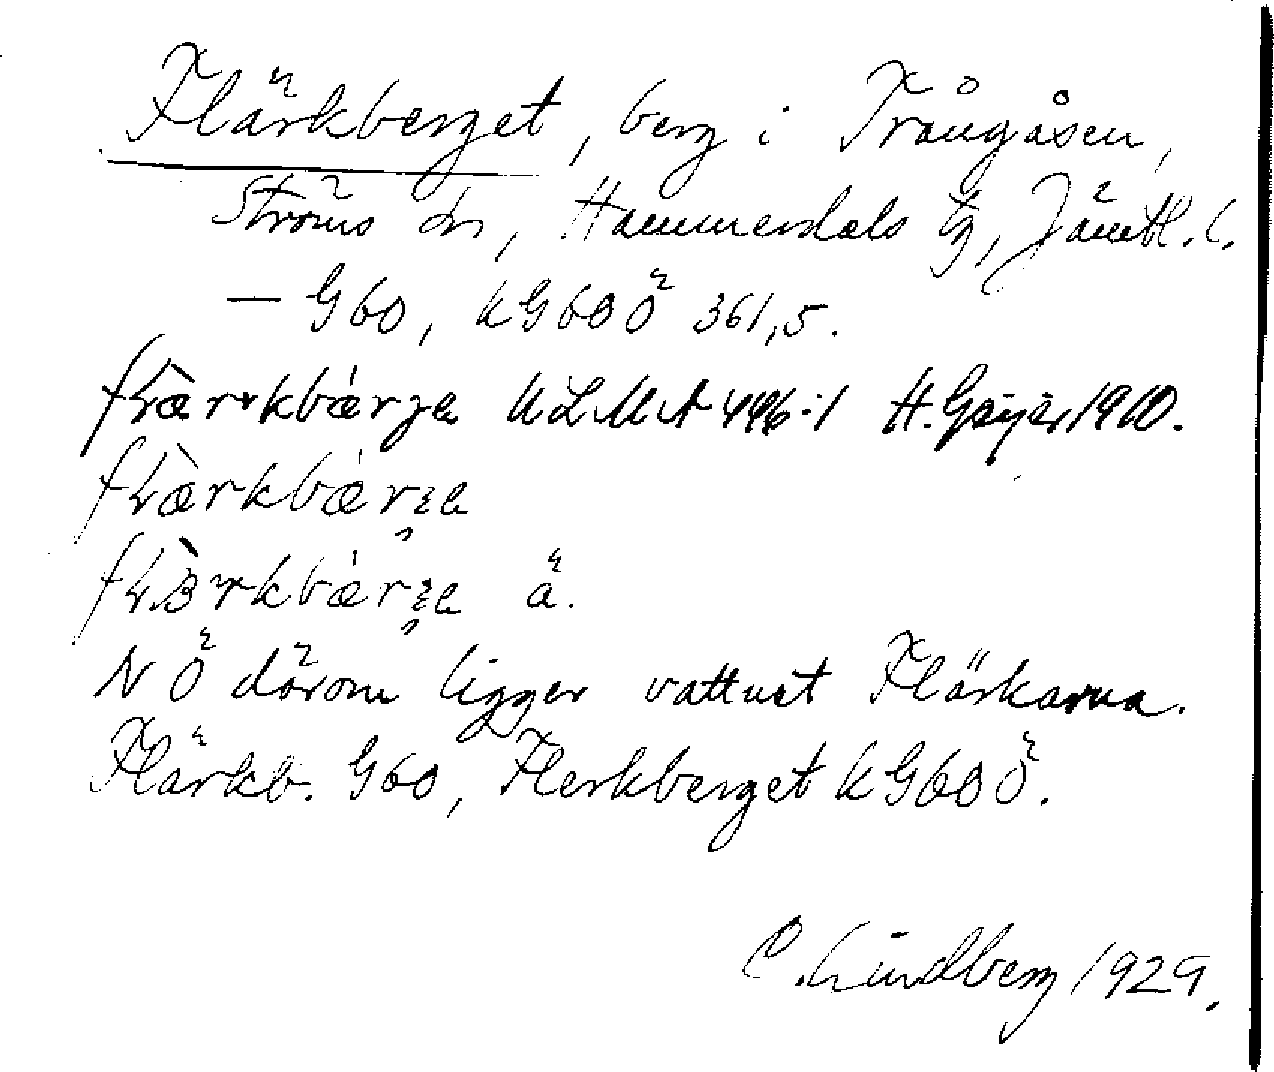 Flärkberget, berg i Trångåsen,
Ströms sn, Hammerdals tg, Jämtl. l.
— G60, kG60Ö 361,5.
flærkbærja ULMA 446:1 H. Geijer 1910.
flærkbærʒa
flærkbærʒa ä.
NÖ därom ligger vattnet Flärkarna.
Flärkb. G60, Flerkberget kG60Ö.
C. Lindberg 1929.